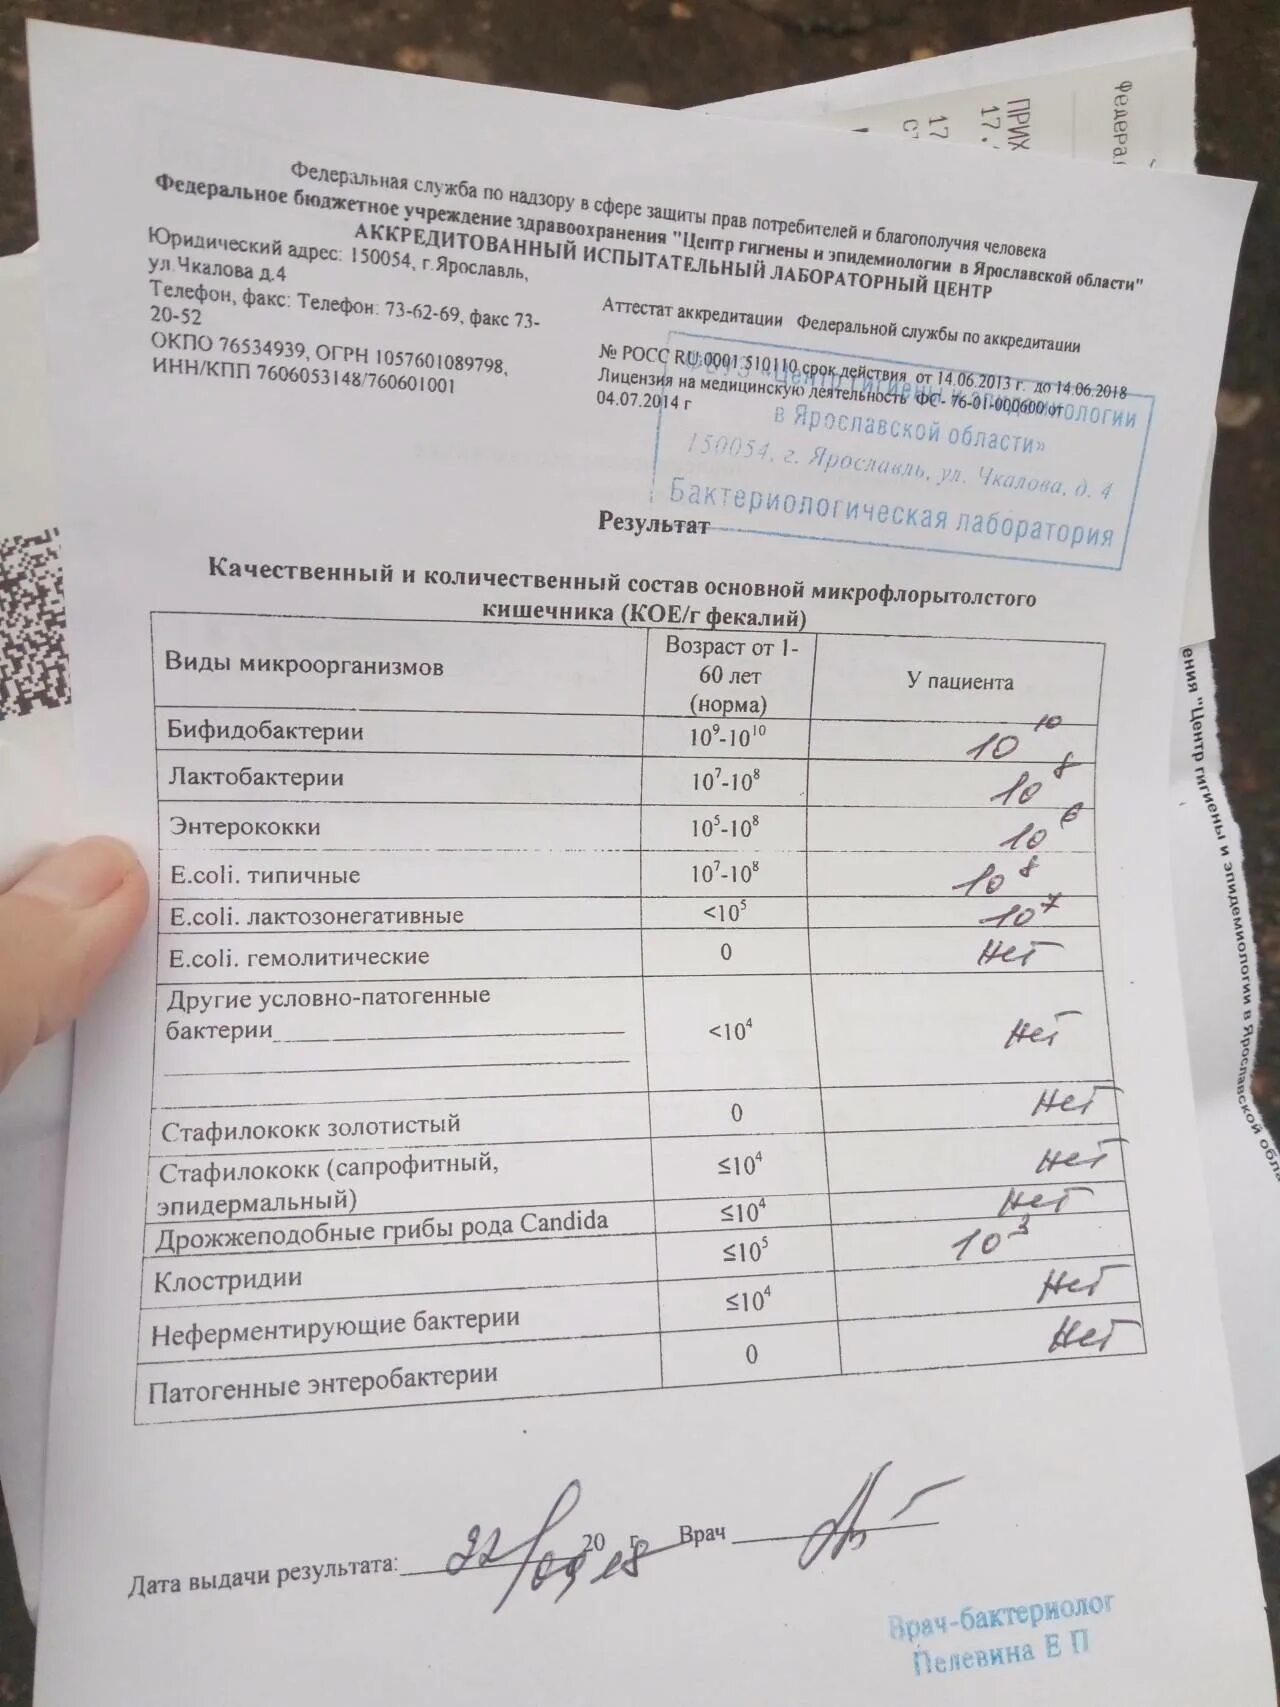 ПРИХ
17.
17
Федера
Федеральная служба по надзору в сфере защиты прав потребителей и благополучия человека
Федеральное бюджетное учреждение здравоохранения "Центр гигиены и эпидемиологии в Ярославской области"
АККРЕДИТОВАННЫЙ ИСПЫТАТЕЛЬНЫЙ ЛАБОРАТОРНЫЙ ЦЕНТР
Юридический адрес: 150054, г.Ярославль,
ул.Чкалова д.4
Телефон, факс: Телефон: 73-62-69, факс 73-
20-52
ОКПО 76534939, ОГРН 1057601089798,
ИНН/КПП 7606053148/760601001
Аттестат аккредитации Федеральной службы по аккредитации
№ РОСС RU.0001.510110 срок действия от 14.06.2013 г. до 14.06.2018
Лицензия на медицинскую деятельность ФС- 76-01-000600 от
04.07.2014 г
ФБУЗ «Центр гигиены и эпидемиологии
в Ярославской области»
150054, г. Ярославль, ул. Чкалова, д. 4
Бактериологическая лаборатория
Результат
Качественный и количественный состав основной микрофлорытолстого
кишечника (КОЕ/г фекалий)
Виды микроорганизмов Возраст от 1-60 лет (норма) У пациента
Бифидобактерии 10⁹-10¹⁰ 10¹⁰
Лактобактерии 10⁷-10⁸ 10⁸
Энтерококки 10⁵-10⁸ 10⁶
E.coli. типичные 10⁷-10⁸ 10⁸
E.coli. лактозонегативные <10⁵ 10⁷
E.coli. гемолитические 0 Нет
Другие условно-патогенные
бактерии <10⁴ Нет
Стафилококк золотистый 0 Нет
Стафилококк (сапрофитный,
эпидермальный) ≤10⁴ Нет
Дрожжеподобные грибы рода Candida ≤10⁴ Нет
Клостридии ≤10⁵ 10³
Неферментирующие бактерии ≤10⁴ Нет
Патогенные энтеробактерии 0 Нет
Дата выдачи результата: 22/09 18 20 г. Врач
Врач-бактериолог
Пелевина Е П
ения "Центр гигиены и эпидемиологии в Ярославской обла